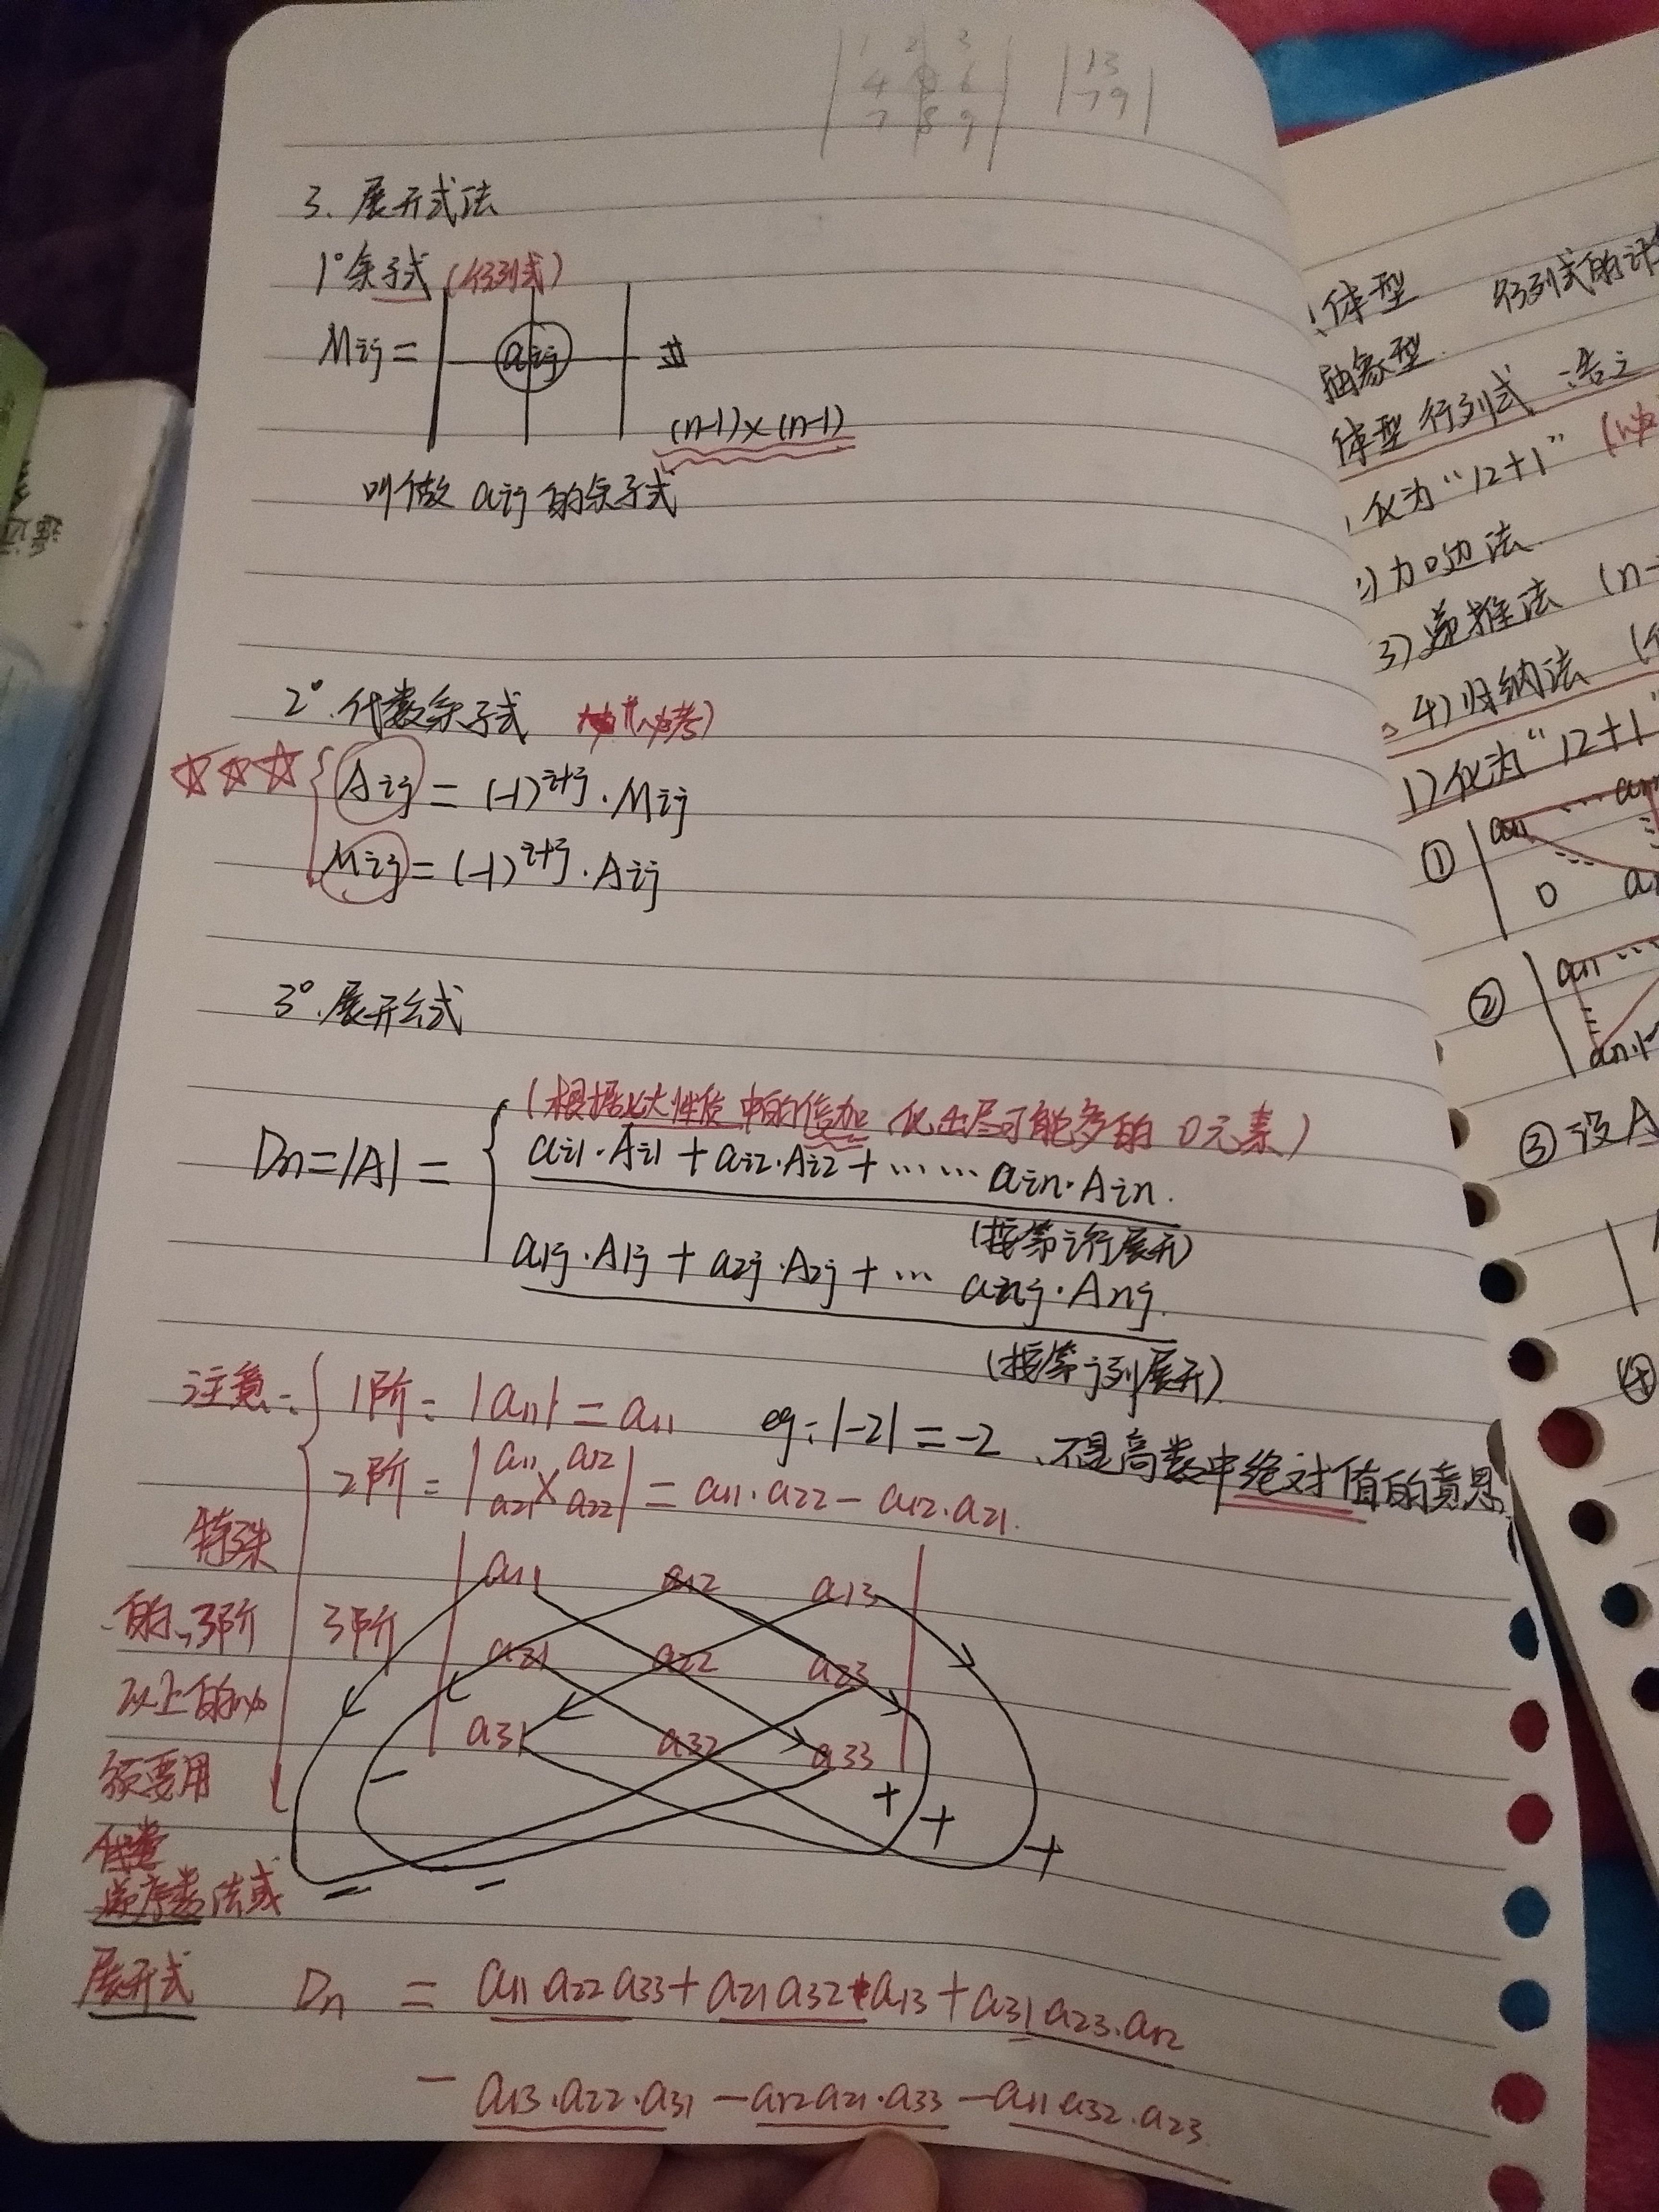 1 2 3
4 5 6
7 8 9
1 3
7 9
3. 展开式法
1° 余子式 (行列式)
Mij = | aij |
(n-1)×(n-1)
叫做 aij 的余子式
2°. 代数余子式 (必考)
Aij = (-1)^i+j · Mij
Mij = (-1)^i+j · Aij
3°. 展开公式
(根据七大性质中的倍加 化出尽可能多的 0元素)
Dn = |A| = { ai1·Ai1 + ai2·Ai2 + …… ain·Ain.
(按第i行展开)
a1j·A1j + a2j·A2j + … anj·Anj.
(按第j列展开)
注意: { 1阶: |a11| = a11 eg: |-2| = -2、不是高数中绝对值的意思
2阶 = | a11 a12
a21 a22 | = a11·a22 - a12·a21.
特殊
的、3阶
以上的必
须要用
逆序数法或
展开式
3阶
a11 a12 a13
a21 a22 a23
a31 a32 a33
- + + +
- -
Dn = a11 a22 a33 + a21 a32 a13 + a31 a23·a12
- a13·a22·a31 - a12 a21·a33 - a11 a32·a23.
体型 行列式的计
抽象型
体型 行列式
化为“12+1”
加边法
3) 递推法 (n-
4) 归纳法
1) 化为“12+1”
① a11 …
0
② a11 …
an1
③ 设A
④